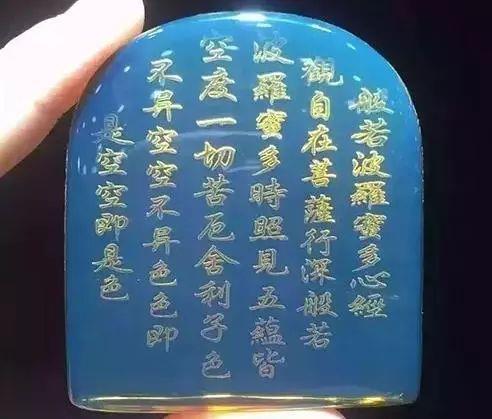 般若波羅蜜多心經
觀自在菩薩行深般若
波羅蜜多時照見五蘊皆
空度一切苦厄舍利子色
不异空空不异色色即
是空空即是色